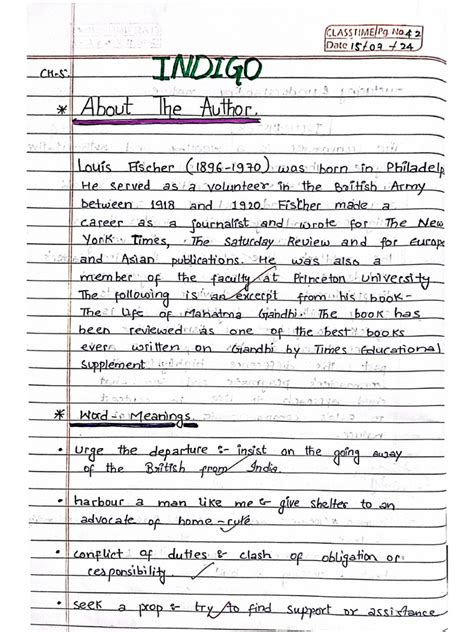 CLASSTIME/Pg. No. 42
Date 15/09/24
CH-5. INDIGO
* About The Author.
Louis Fischer (1896-1970) was born in Philadelp
He served as a volunteer in the British Army
between 1918 and 1920. Fischer made a
career as a journalist and wrote for The New
York Times, The Saturday Review and for Europe
and Asian publications. He was also a
member of the faculty at Princeton University
The following is an excerpt from his book-
The Life of Mahatma Gandhi. The book has
been reviewed as one of the best books
ever written on Gandhi by Times Educational
Supplement
* Word - Meanings.
• Urge the departure :- insist on the going away
of the British from India.
• harbour a man like me :- give shelter to an
advocate of home-rule
• conflict of duties :- clash of obligation or
responsibility.
• seek a prop :- try to find support or assistance